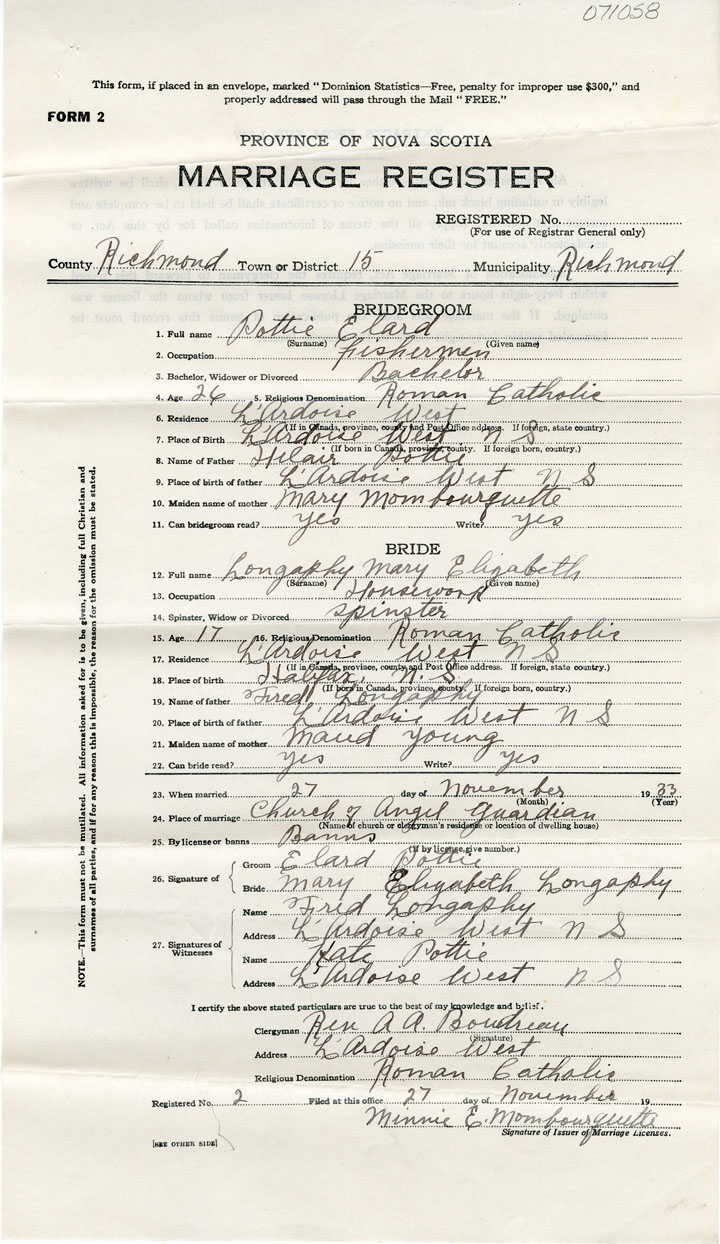 071058
This form, if placed in an envelope, marked "Dominion Statistics—Free, penalty for improper use $300," and
properly addressed will pass through the Mail "FREE."
FORM 2
PROVINCE OF NOVA SCOTIA
MARRIAGE REGISTER
REGISTERED No.
(For use of Registrar General only)
County Richmond Town or District 15 Municipality Richmond
BRIDEGROOM
1. Full name Pottie Elard
(Surname) (Given name)
2. Occupation Fishermen
3. Bachelor, Widower or Divorced Bachelor
4. Age 26 5. Religious Denomination Roman Catholic
6. Residence L'Ardoise West
(If in Canada, province, county and Post Office address. If foreign, state country.)
7. Place of Birth L'Ardoise West N S
(If born in Canada, province, county. If foreign born, country.)
8. Name of Father Hilair Pottie
9. Place of birth of father L'Ardoise West N S
10. Maiden name of mother Mary Mombourquette
11. Can bridegroom read? yes Write? yes
BRIDE
12. Full name Longaphy Mary Elizabeth
(Surname) (Given name)
13. Occupation Housework
14. Spinster, Widow or Divorced spinster
15. Age 17 16. Religious Denomination Roman Catholic
17. Residence L'Ardoise West N S
(If in Canada, province, county and Post Office address. If foreign, state country.)
18. Place of birth Halifax, N. S
(If born in Canada, province, county. If foreign born, country.)
19. Name of father Fred Longaphy
20. Place of birth of father L'Ardoise West N S
21. Maiden name of mother Maud Young
22. Can bride read? yes Write? yes
23. When married 27 day of November 19 33
(Month) (Year)
24. Place of marriage Church of Angel Guardian
(Name of church or clergyman's residence or location of dwelling house)
25. By license or banns Banns
(If by license, give number.)
26. Signature of Groom Elard Pottie
Bride Mary Elizabeth Longaphy
27. Signatures of Witnesses
Name Fred Longaphy
Address L'Ardoise West N S
Name Kate Pottie
Address L'Ardoise West N S
I certify the above stated particulars are true to the best of my knowledge and belief.
Clergyman Rev A A. Boudreau
(Signature)
Address L'Ardoise West
Religious Denomination Roman Catholic
Registered No. 2 Filed at this office 27 day of November 19
Minnie E. Mombourquette
Signature of Issuer of Marriage Licenses.
[SEE OTHER SIDE]
NOTE.—This form must not be mutilated. All information asked for is to be given, including full Christian and
surnames of all parties, and if for any reason this is impossible, the reason for the omission must be stated.